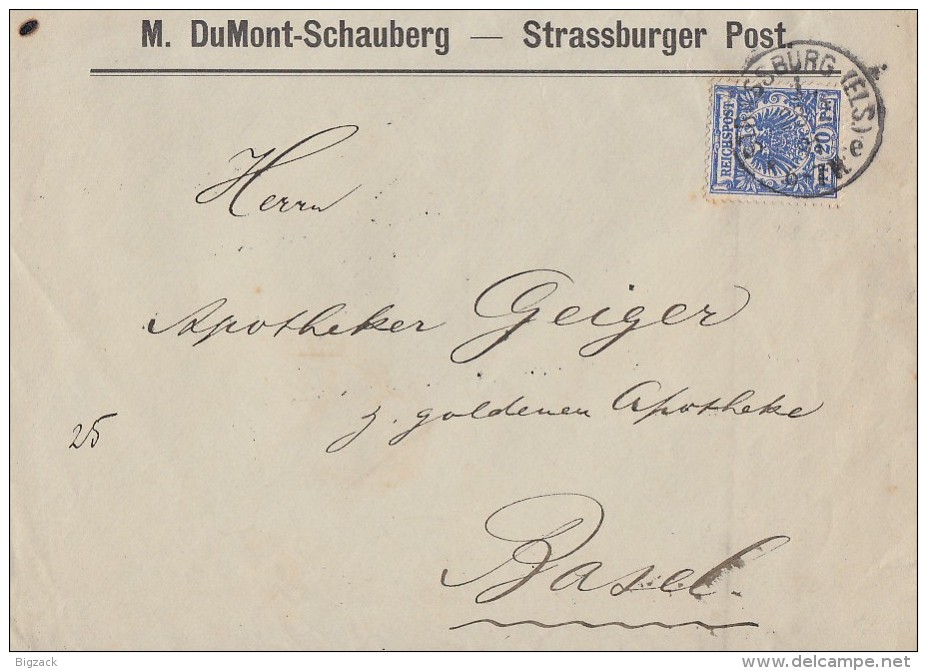 M. DuMont-Schauberg — Strassburger Post.
SSBURG (ELS.) e
REICHSPOST 20 PF
Herrn
Apotheker Geiger
z. goldenen Apotheke
25
Basel.
Bigzack
www.delcampe.net